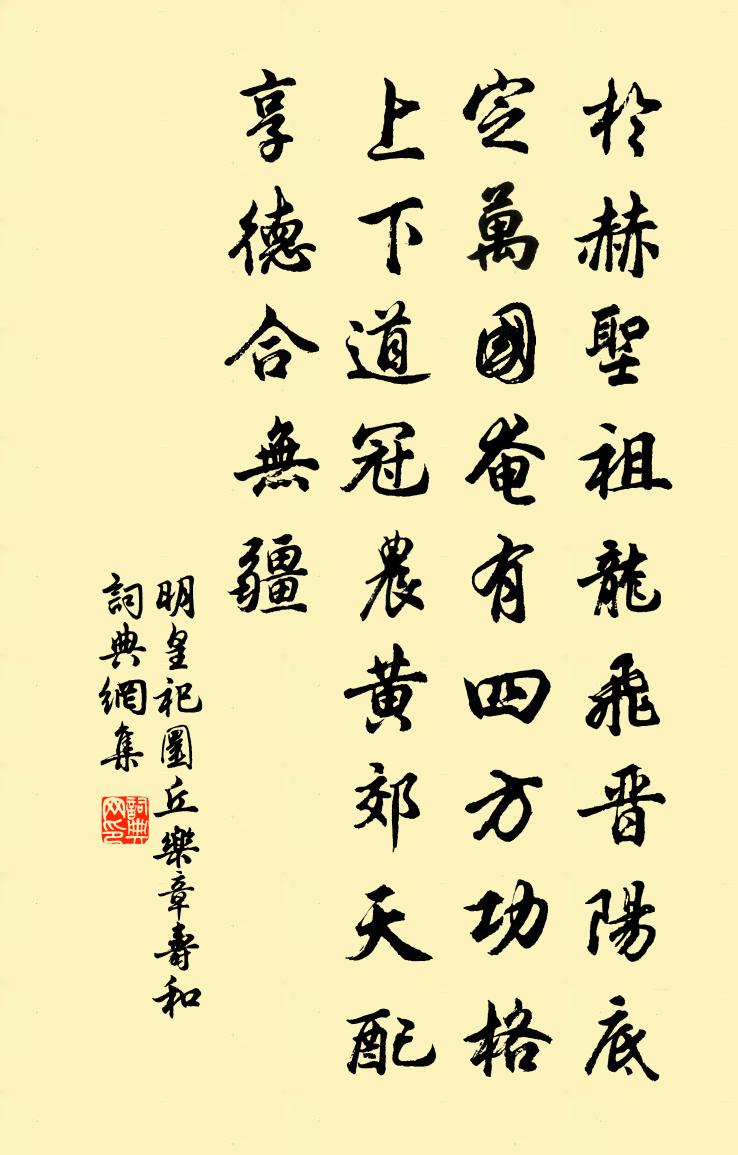 於赫聖祖龍飛晋陽底
定萬國奄有四方功格
上下道冠農黃郊天配
享德合無疆
明皇祀圜丘樂章壽和
詞典網集
詞典网印